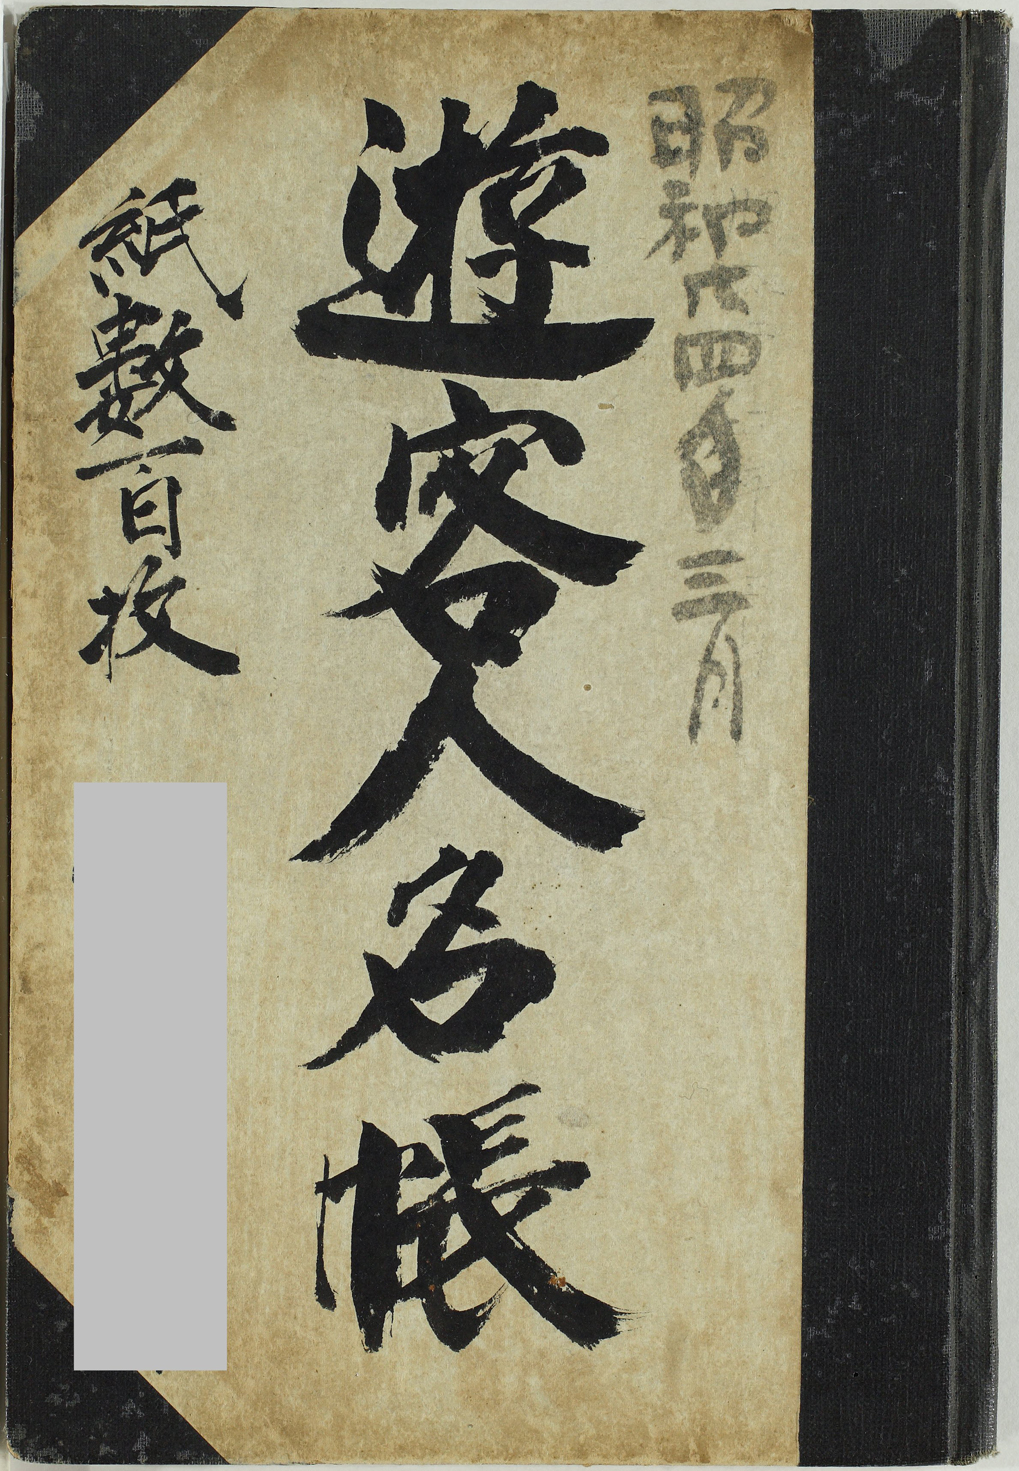 昭和廿四年三月
遊客人名帳
紙數百枚